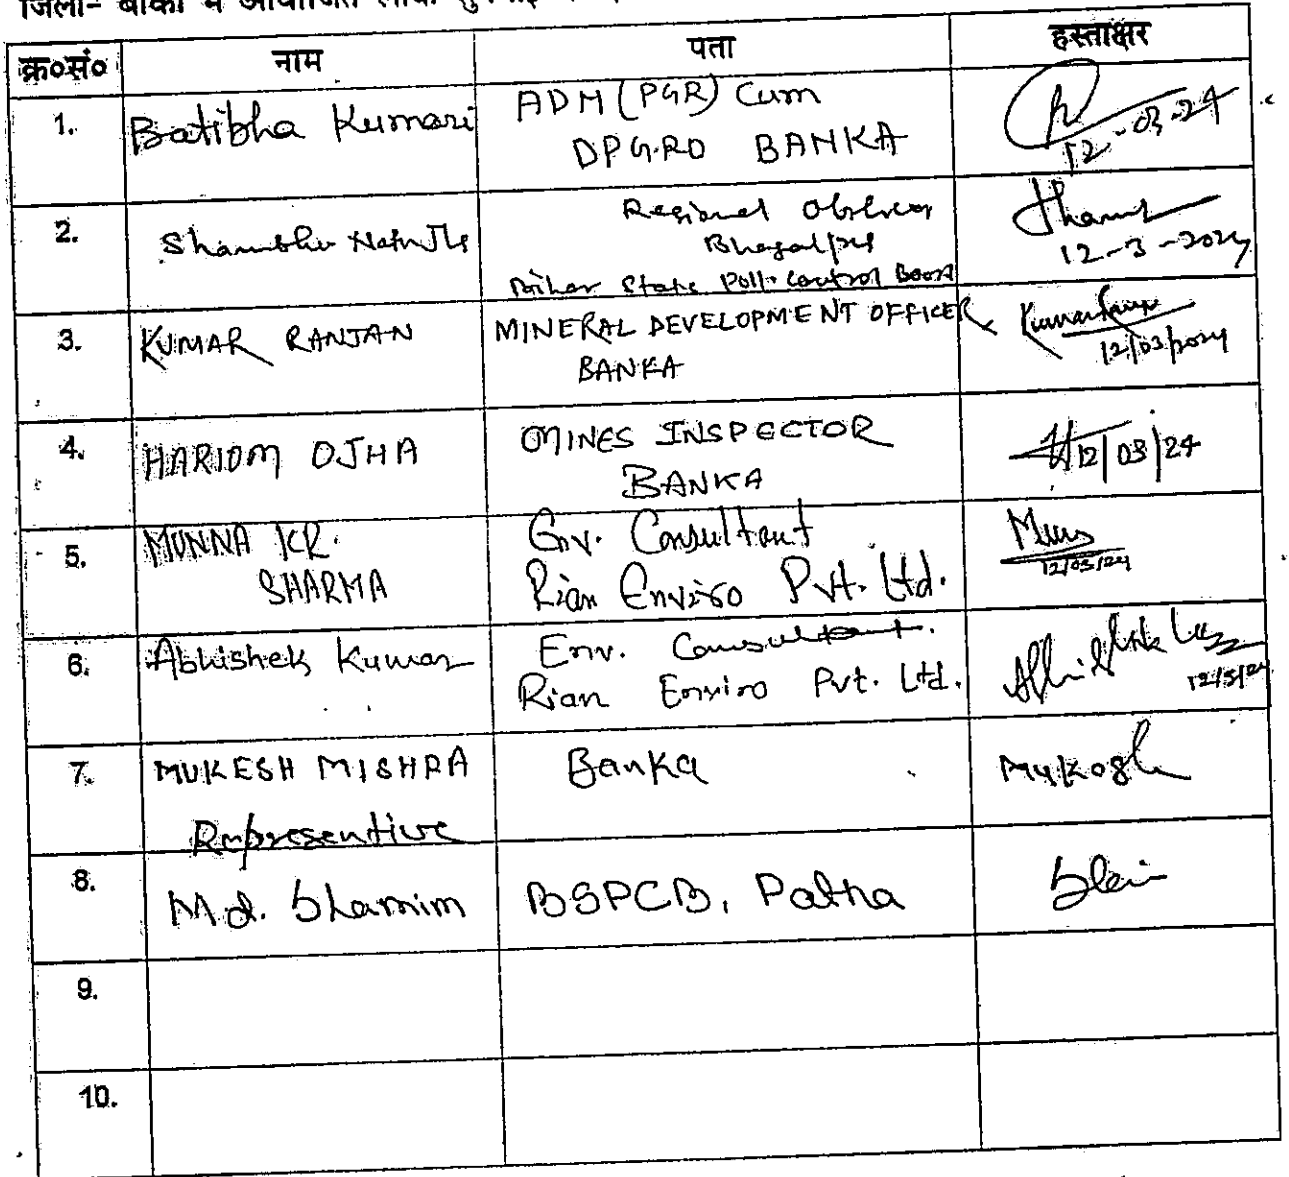 जिला- बांका में आयोजित लोक
क्र०सं० नाम पता हस्ताक्षर
1. Batibha Kumari ADM (PGR) Cum
DPGRO BANKA
12-03-24
2. Shambhu Nath Jha Regional Officer
Bhagalpur
Bihar State Poll. Control Board
12-3-2024
3. KUMAR RANJAN MINERAL DEVELOPMENT OFFICER
BANKA
12/03/2024
4. HARIOM OJHA MINES INSPECTOR
BANKA
12/03/24
5. MUNNA KR.
SHARMA
Env. Consultant
Rian Enviro Pvt. Ltd.
12/03/24
6. Abhishek Kumar Env. Consultant.
Rian Enviro Pvt. Ltd.
12/3/24
7. MUKESH MISHRA
Representive
Banka Mukesh
8. Md. Shamim BSPCB, Patna
9.
10.